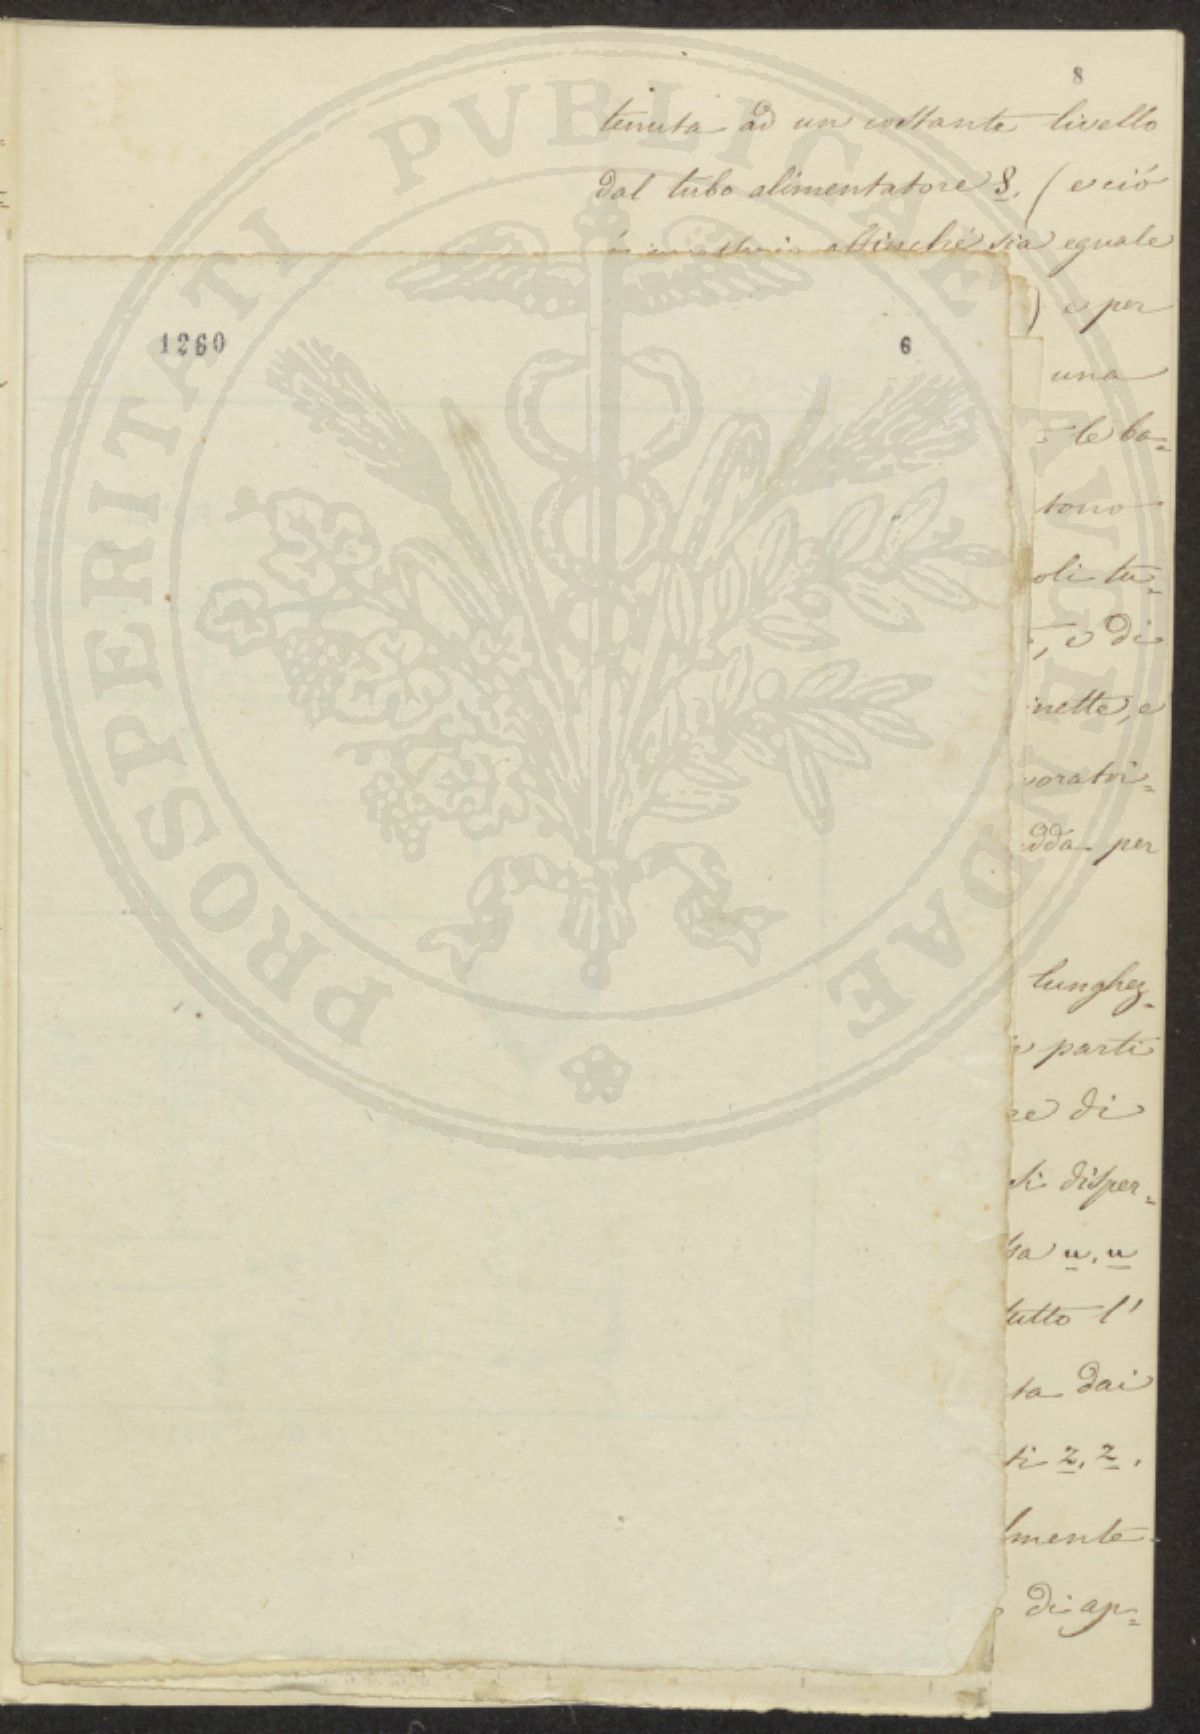 8
tenuta ad un costante livello
dal tubo alimentatore 8, (e ció
affinché sia eguale
) e per
una
le ba=
tono
oli tu=
, e di
inette, e
voratri=
edda per
lunghez=
e parti
re di
si disper=
sa u, u
tutto l'
ta dai
ti z, z,
lmente
di ap=
1260
6
PROSPERITATI PVBLICAE AVGENDAE